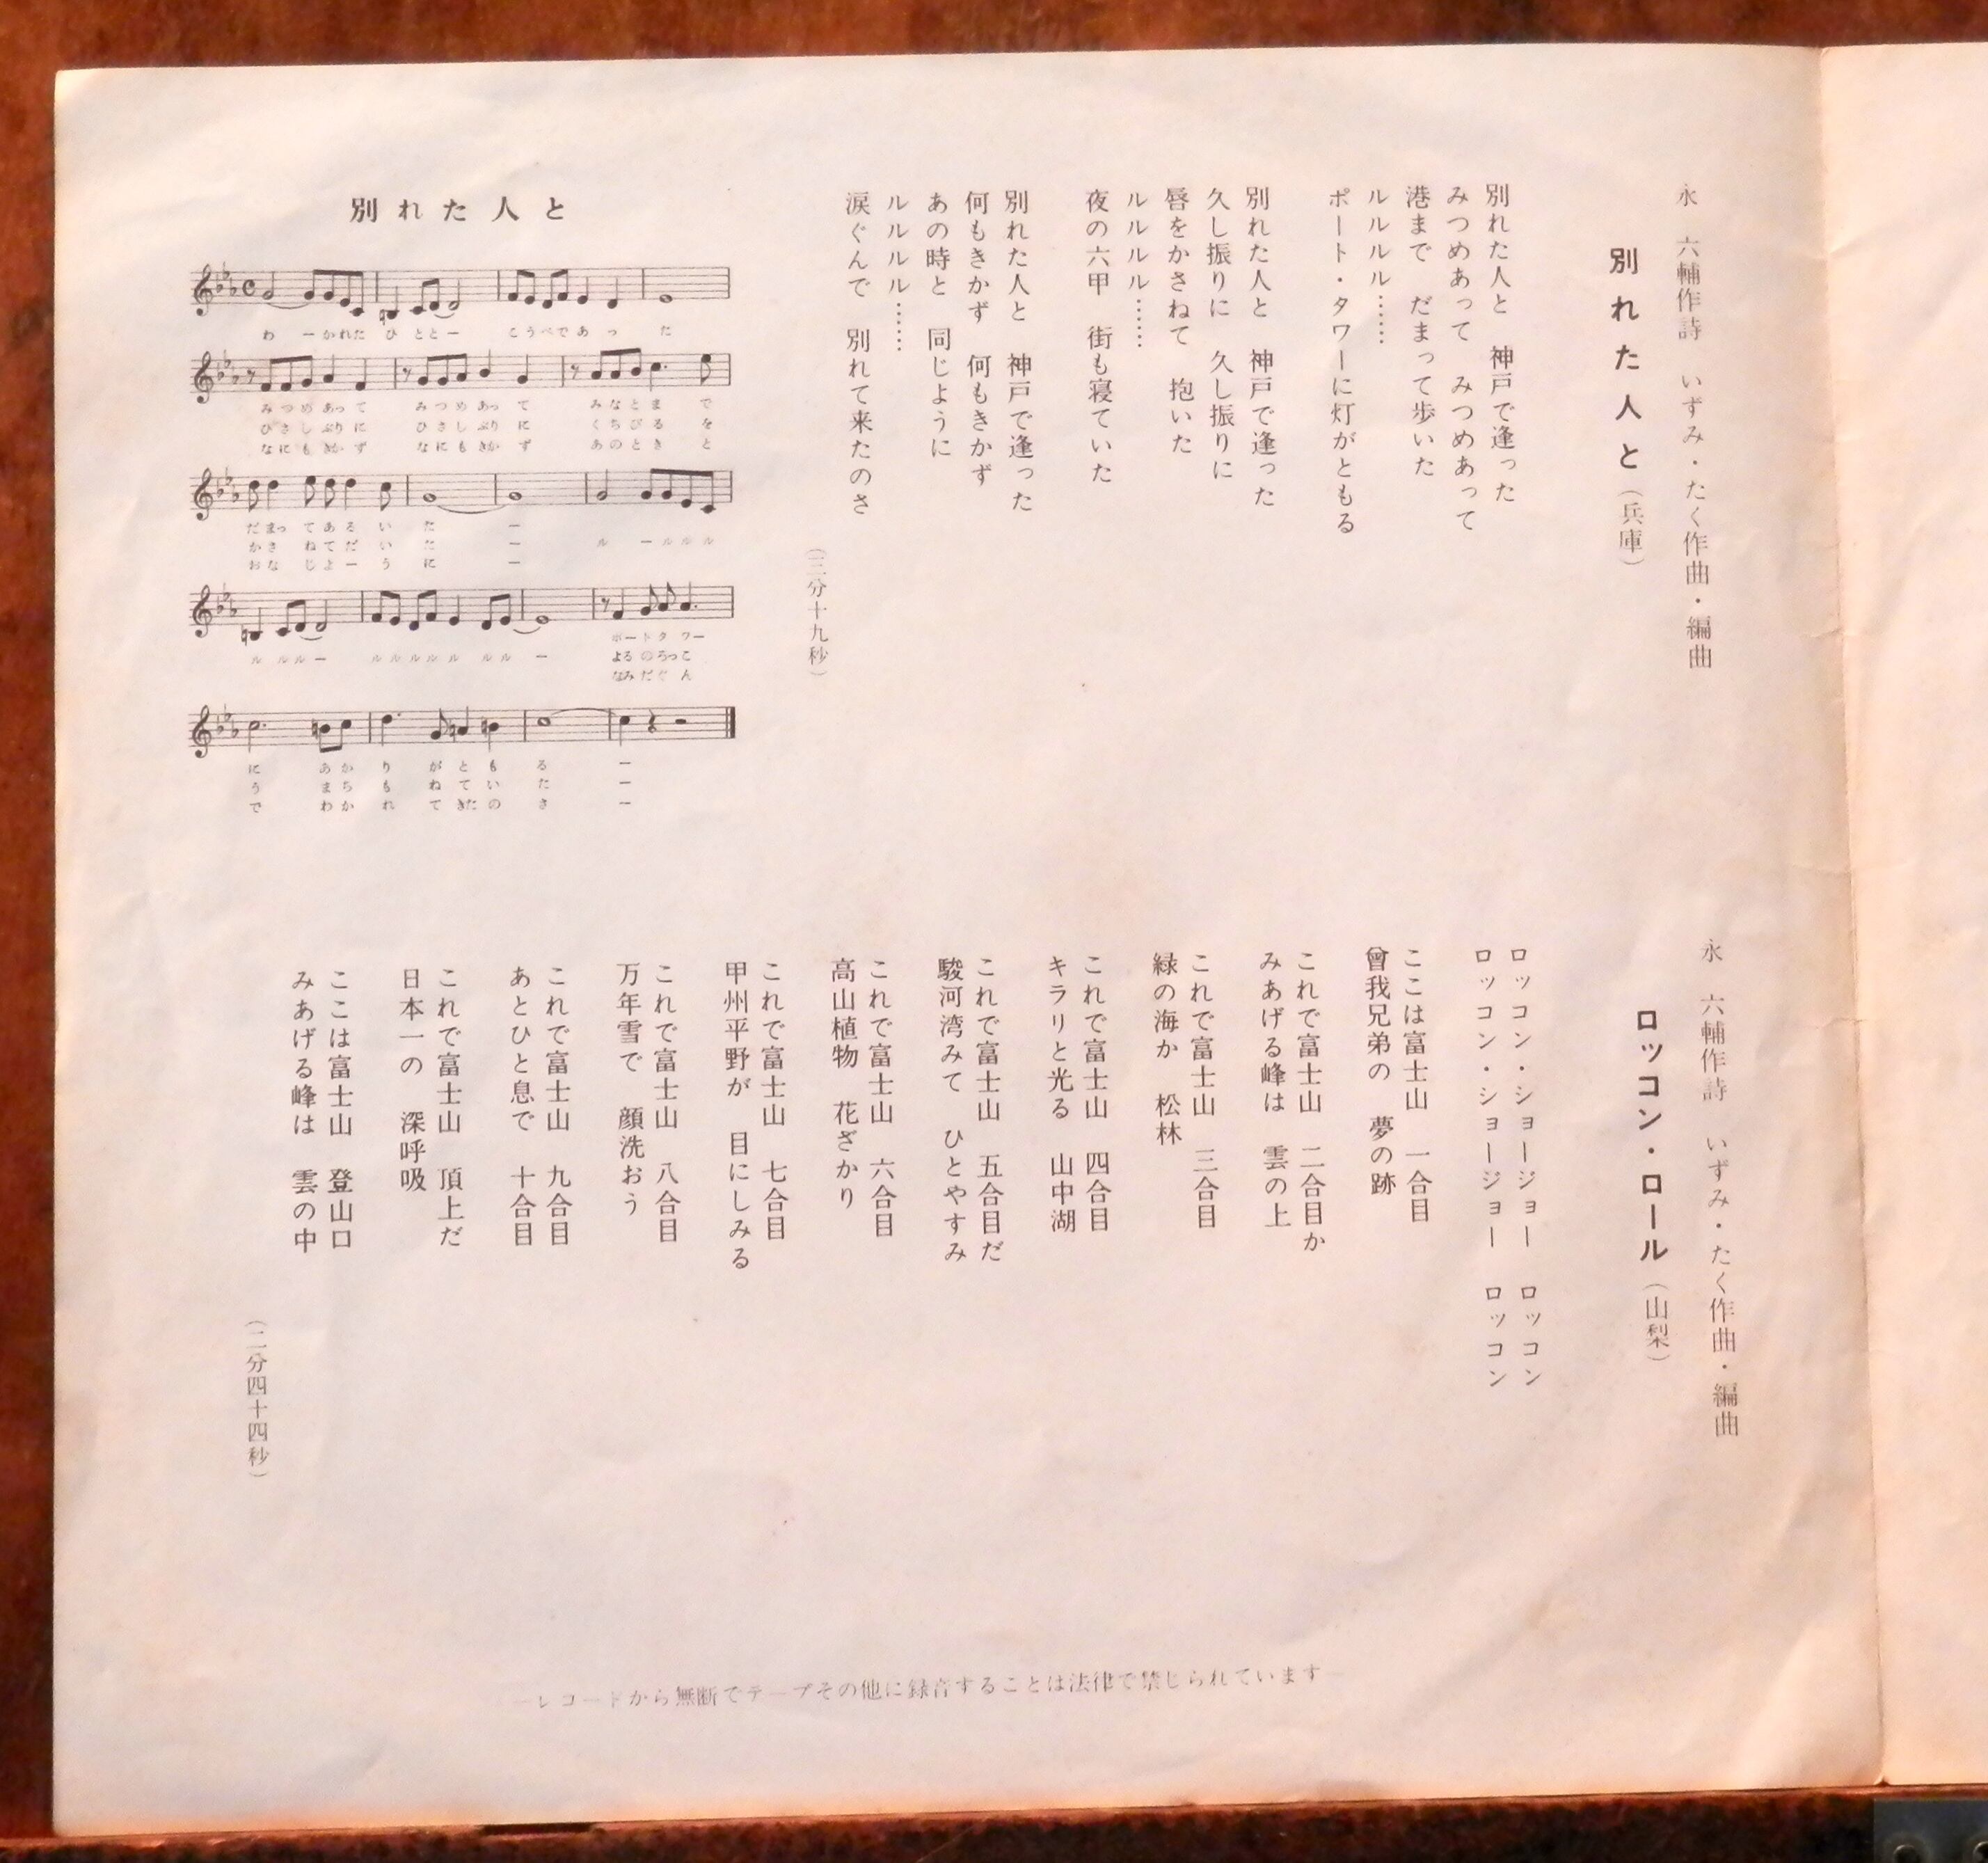 永 六輔作詩 いずみ・たく作曲・編曲
別れた人と(兵庫)
別れた人と 神戸で逢った
みつめあって みつめあって
港まで だまって歩いた
ルルルル……
ポート・タワーに灯がともる
別れた人と 神戸で逢った
久し振りに 久し振りに
唇をかさねて 抱いた
ルルルル……
夜の六甲 街も寝ていた
別れた人と 神戸で逢った
何もきかず 何もきかず
あの時と 同じように
ルルルル……
涙ぐんで 別れて来たのさ
(三分十九秒)
別れた人と
わ ーかれた ひ ととー こうべで あ っ た
みつめあって みつめあって みなとま で
ひさしぶりに ひさしぶりに くちびる を
なにもきかず なにもきかず あのとき と
だまっ てある い た ー
かさ ねてだ い た ー ル ールルル
おな じよー う に ー
ポートタワー
ル ルルー ルルルルル ルル ー よるのろっこ
なみだぐん
に あか り がとも る ー
う まち も ねてい た ー
で わか れ てきたの さ ー
永 六輔作詩 いずみ・たく作曲・編曲
ロッコン・ロール(山梨)
ロッコン・ショージョー ロッコン
ロッコン・ショージョー ロッコン
ここは富士山 一合目
曾我兄弟の 夢の跡
これで富士山 二合目か
みあげる峰は 雲の上
これで富士山 三合目
緑の海か 松林
これで富士山 四合目
キラリと光る 山中湖
これで富士山 五合目だ
駿河湾みて ひとやすみ
これで富士山 六合目
高山植物 花ざかり
これで富士山 七合目
甲州平野が 目にしみる
これで富士山 八合目
万年雪で 顔洗おう
これで富士山 九合目
あとひと息で 十合目
これで富士山 頂上だ
日本一の 深呼吸
ここは富士山 登山口
みあげる峰は 雲の中
(二分四十四秒)
―レコードから無断でテープその他に録音することは法律で禁じられています―